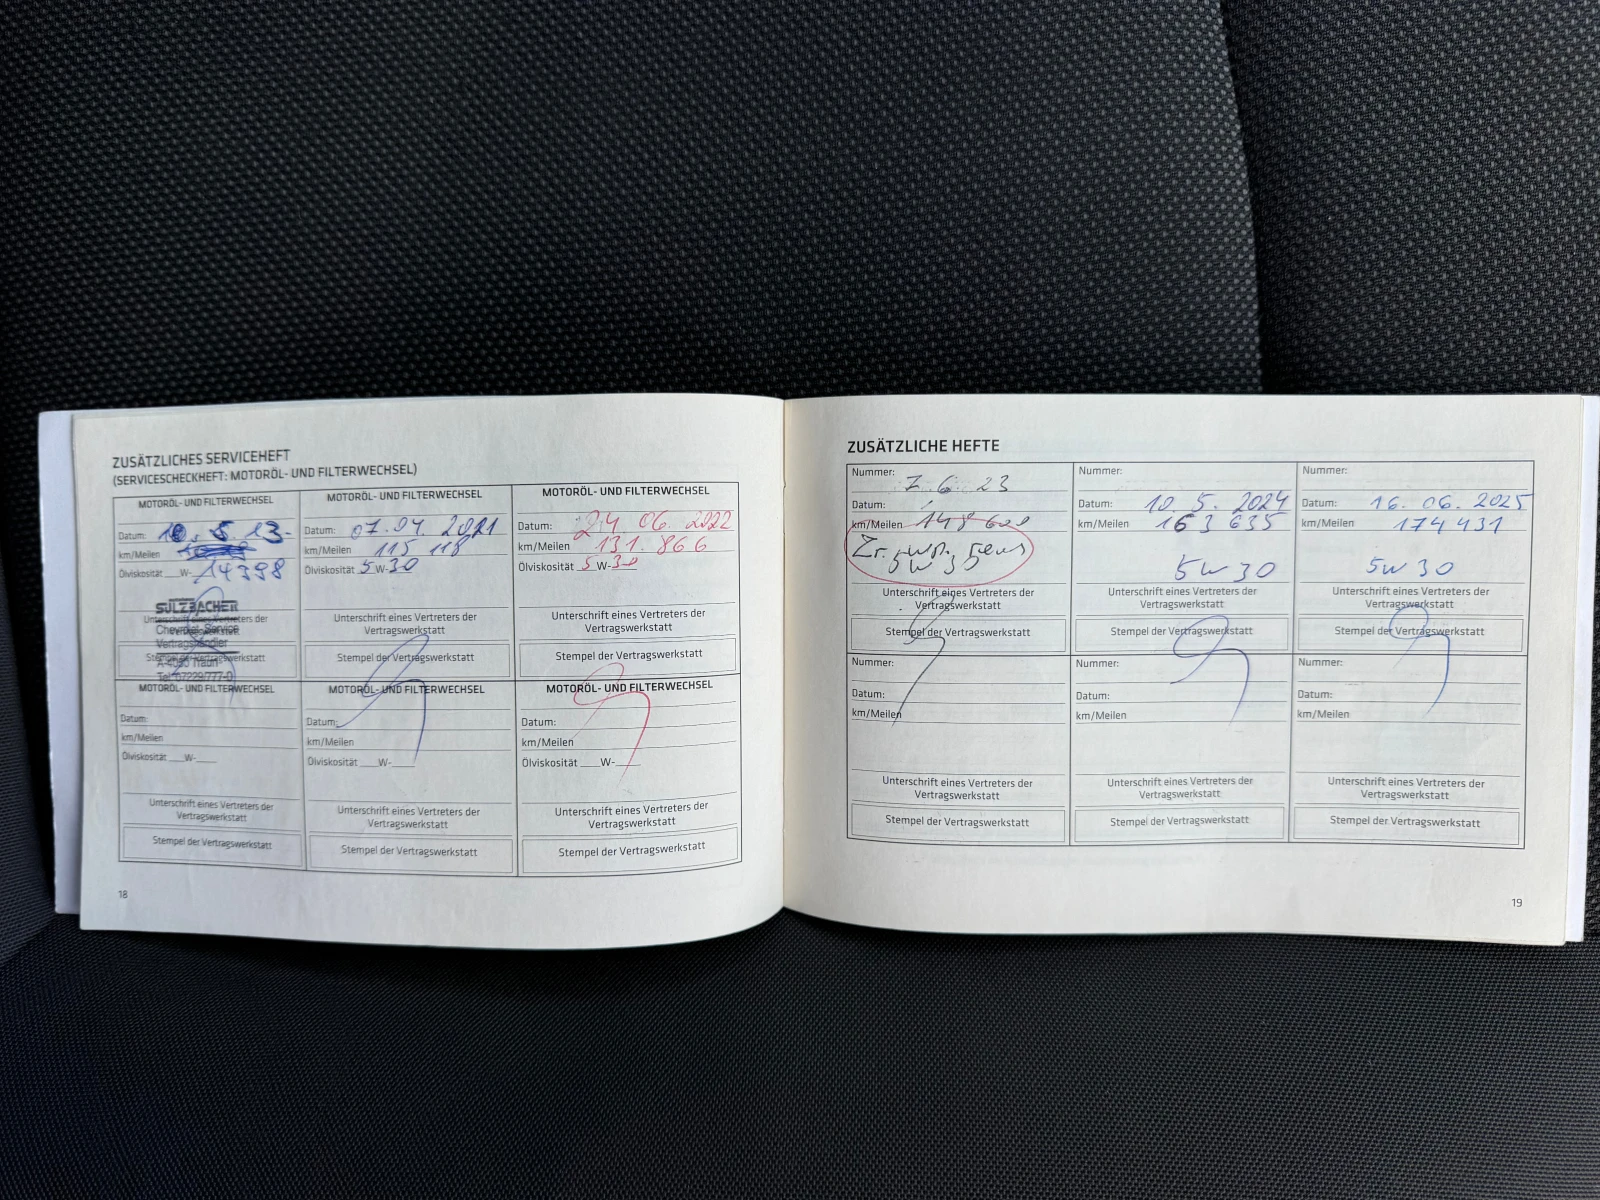 ZUSÄTZLICHES SERVICEHEFT
(SERVICESCHECKHEFT: MOTORÖL- UND FILTERWECHSEL)
MOTORÖL- UND FILTERWECHSEL
Datum: 10. 5. 13-
km/Meilen
Ölviskosität __W- 14398
SULZBACHER
Unterschrift eines Vertreters der
Chevrolet Service
Vertragshändler
Stempel der Vertragswerkstatt
A-4050 Traun
Tel. 07229/777-0
MOTORÖL- UND FILTERWECHSEL
Datum: 07.04 2021
km/Meilen 115 118
Ölviskosität 5 W-30
Unterschrift eines Vertreters der
Vertragswerkstatt
Stempel der Vertragswerkstatt
MOTORÖL- UND FILTERWECHSEL
Datum: 24 06. 2022
km/Meilen 131. 866
Ölviskosität 5 W-30
Unterschrift eines Vertreters der
Vertragswerkstatt
Stempel der Vertragswerkstatt
MOTORÖL- UND FILTERWECHSEL
Datum:
km/Meilen
Ölviskosität __W-__
Unterschrift eines Vertreters der
Vertragswerkstatt
Stempel der Vertragswerkstatt
MOTORÖL- UND FILTERWECHSEL
Datum:
km/Meilen
Ölviskosität __W-__
Unterschrift eines Vertreters der
Vertragswerkstatt
Stempel der Vertragswerkstatt
MOTORÖL- UND FILTERWECHSEL
Datum:
km/Meilen
Ölviskosität __W-__
Unterschrift eines Vertreters der
Vertragswerkstatt
Stempel der Vertragswerkstatt
18
ZUSÄTZLICHE HEFTE
Nummer: 7. 6. 23
Datum:
km/Meilen 148 600
Zr.
5W 30
Unterschrift eines Vertreters der
Vertragswerkstatt
Stempel der Vertragswerkstatt
Nummer:
Datum: 10. 5. 2024
km/Meilen 163 635
5W 30
Unterschrift eines Vertreters der
Vertragswerkstatt
Stempel der Vertragswerkstatt
Nummer:
Datum: 16. 06. 2025
km/Meilen 174 431
5W 30
Unterschrift eines Vertreters der
Vertragswerkstatt
Stempel der Vertragswerkstatt
Nummer:
Datum:
km/Meilen
Unterschrift eines Vertreters der
Vertragswerkstatt
Stempel der Vertragswerkstatt
Nummer:
Datum:
km/Meilen
Unterschrift eines Vertreters der
Vertragswerkstatt
Stempel der Vertragswerkstatt
Nummer:
Datum:
km/Meilen
Unterschrift eines Vertreters der
Vertragswerkstatt
Stempel der Vertragswerkstatt
19